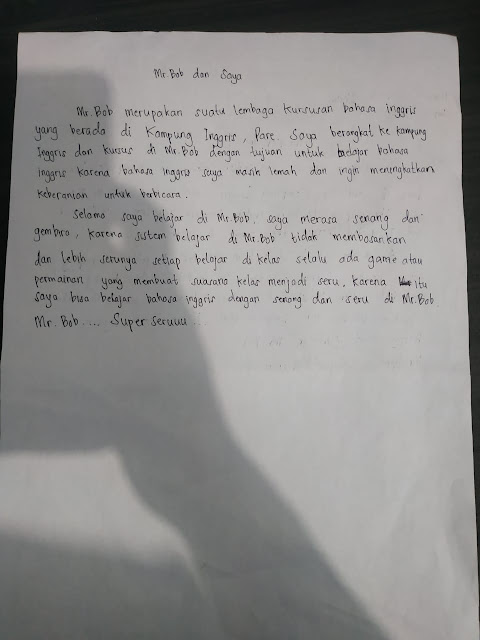 Mr. Bob dan Saya
Mr. Bob merupakan suatu lembaga kursusan bahasa inggris
yang berada di Kampung Inggris, Pare. Saya berangkat ke kampung
Inggris dan kursus di Mr. Bob dengan tujuan untuk belajar bahasa
inggris karena bahasa inggris saya masih lemah dan ingin meningkatkan
keberanian untuk berbicara.
Selama saya belajar di Mr. Bob, saya merasa senang dan
gembira, karena sistem belajar di Mr. Bob tidak membosankan
dan lebih serunya setiap belajar di kelas selalu ada game atau
permainan yang membuat suasana kelas menjadi seru, karena itu
saya bisa belajar bahasa inggris dengan senang dan seru di Mr. Bob.
Mr. Bob.... Super seruuu...